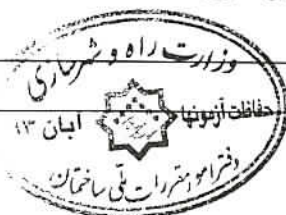 وزارت راه و شهرسازی
حفاظت آزمونها
آبان ۹۳
دفتر امور مقررات ملّی ساختمان